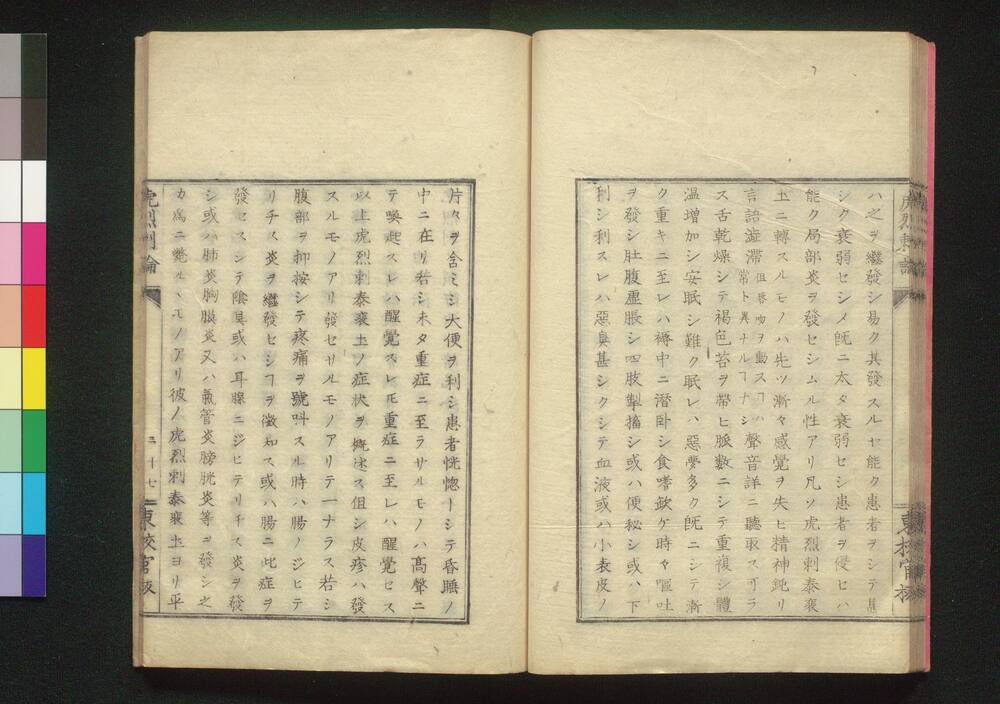 虎烈剌論
ハ之ヲ繼發シ易ク其發スルヤ能ク患者ヲシテ甚
シク衰弱セシメ既ニ太タ衰弱セシ患者ヲ侵セハ
能ク局部炎ヲ發セシムル性アリ凡ソ虎烈剌泰窒
扶ニ轉スルモノハ先ツ漸々感覺ヲ失ヒ精神鈍リ
言語澁滯但唇吻ヲ動スヿハ常ト異ナルヿナシ聲音詳ニ聽取スヘカラ
ス舌乾燥シテ褐色苔ヲ帶ヒ脈數ニシテ重複シ體
温增加シ安眠シ難ク眠レハ惡夢多ク既ニシテ漸
ク重キニ至レハ褥中ニ潛卧シ食嗜欽ケ時々嘔吐
ヲ發シ肚腹虛脹シ四肢掣搐シ或ハ便秘シ或ハ下
利シ利スレハ惡臭甚シクシテ血液或ハ小表皮ノ
東校官板
片々ヲ含ミシ大便ヲ利シ患者恍惚トシテ昏睡ノ
中ニ在リ若シ未タ重症ニ至ラサルモノハ高聲ニ
テ喚起スレハ醒覺スレ𪜈重症ニ至レハ醒覺セス
以上虎烈剌泰窒扶ノ症狀ヲ概述ス但シ皮疹ハ發
スルモノアリ發セサルモノアリテ一ナラス若シ
腹部ヲ抑按シテ疼痛ヲ號呌スル時ハ腸ノジヒテ
リチス炎ヲ繼發セシヿヲ徵知ス或ハ腸ニ此症ヲ
發セスシテ陰具或ハ耳腺ニジヒテリチス炎ヲ發
シ或ハ肺炎胸膜炎又ハ氣管炎膀胱炎等ヲ發シ之
カ爲ニ斃ルヽモノアリ彼ノ虎烈剌泰窒扶ヨリ平
虎烈剌論
二十七
東校官板